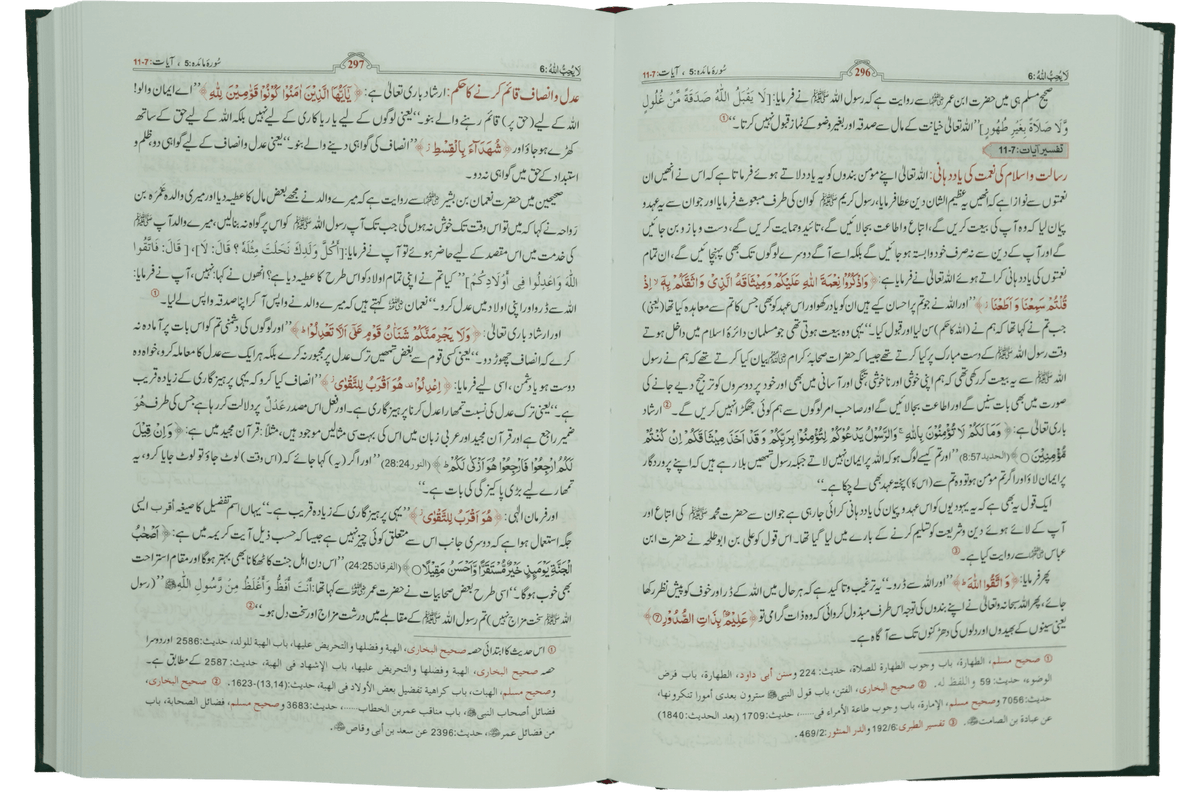 لَا يُحِبُّ اللّٰهُ: 6
296
سُورۂ مائدہ: 5 ، آیات: 7-11
صحیح مسلم ہی میں حضرت ابن عمر رضی اللہ عنہما سے روایت ہے کہ رسول اللہ ﷺ نے فرمایا: [لَا يَقْبَلُ اللّٰهُ صَدَقَةً مِّنْ غُلُولٍ
وَّلَا صَلَاةً بِغَيْرِ طُهُورٍ] ”اللہ تعالیٰ خیانت کے مال سے صدقہ اور بغیر وضو کے نماز قبول نہیں کرتا۔“ ①
تفسیر آیات: 7-11
رسالت و اسلام کی نعمت کی یاد دہانی: اللہ تعالیٰ اپنے مؤمن بندوں کو یہ یاد دلاتے ہوئے فرماتا ہے کہ اس نے انھیں ان
نعمتوں سے نوازا ہے کہ انھیں یہ عظیم الشان دین عطا فرمایا، رسول کریم ﷺ کو ان کی طرف مبعوث فرمایا اور جو ان سے یہ عہد و
پیمان لیا کہ وہ آپ کی بیعت کریں گے، اتباع و اطاعت بجا لائیں گے، تائید و حمایت کریں گے، دست و بازو بن جائیں
گے اور آپ کے دین سے نہ صرف خود وابستہ ہو جائیں گے، بلکہ اسے آگے دوسرے لوگوں تک بھی پہنچائیں گے، ان تمام
نعمتوں کی یاد دہانی کراتے ہوئے اللہ تعالیٰ نے فرمایا ہے: ﴿وَاذْكُرُوْا نِعْمَةَ اللّٰهِ عَلَيْكُمْ وَمِيْثَاقَهُ الَّذِيْ وَاثَقَكُمْ بِهٖٓ ۙ اِذْ
قُلْتُمْ سَمِعْنَا وَاَطَعْنَا ۡ﴾ ”اور اللہ نے جو تم پر احسان کیے ہیں ان کو یاد رکھو اور اس عہد کو بھی جس کا تم سے معاہدہ کیا تھا (یعنی)
جب تم نے کہا تھا کہ ہم نے (اللہ کا حکم) سن لیا اور قبول کیا۔“ یہی وہ بیعت ہوتی تھی جو مسلمان دائرہ اسلام میں داخل ہوتے
وقت رسول اللہ ﷺ کے دست مبارک پر کیا کرتے تھے جیسا کہ حضرات صحابۂ کرام رضی اللہ عنہم بیان کیا کرتے تھے کہ ہم نے رسول
اللہ ﷺ سے یہ بیعت کر رکھی تھی کہ ہم اپنی خوشی اور ناخوشی، تنگی اور آسانی میں بھی اور خود پر دوسروں کو ترجیح دیے جانے کی
صورت میں بھی بات سنیں گے اور اطاعت بجا لائیں گے اور صاحب امر لوگوں سے ہم کوئی جھگڑا نہیں کریں گے۔ ② ارشاد
باری تعالیٰ ہے: ﴿وَمَا لَكُمْ لَا تُؤْمِنُوْنَ بِاللّٰهِ ۚ وَالرَّسُوْلُ يَدْعُوْكُمْ لِتُؤْمِنُوْا بِرَبِّكُمْ وَقَدْ اَخَذَ مِيْثَاقَكُمْ اِنْ كُنْتُمْ
مُّؤْمِنِيْنَ ○﴾ (الحديد 8:57) ”اور تم کیسے لوگ ہو کہ اللہ پر ایمان نہیں لاتے جبکہ رسول تمھیں بلا رہے ہیں کہ اپنے پروردگار
پر ایمان لاؤ اور اگر تم مومن ہو تو وہ تم سے (اس کا) پختہ عہد بھی لے چکا ہے۔“
ایک قول یہ بھی ہے کہ یہ یہودیوں کو اس عہد و پیمان کی یاد دہانی کرائی جا رہی ہے جو ان سے حضرت محمد ﷺ کی اتباع اور
آپ کے لائے ہوئے دین و شریعت کو تسلیم کرنے کے بارے میں لیا گیا تھا۔ اس قول کو علی بن ابو طلحہ نے حضرت ابن
عباس رضی اللہ عنہما سے روایت کیا ہے۔ ③
پھر فرمایا: ﴿وَاتَّقُوا اللّٰهَ ؕ﴾ ”اور اللہ سے ڈرو۔“ یہ ترغیب و تاکید ہے کہ ہر حال میں اللہ کے ڈر اور خوف کو پیش نظر رکھا
جائے، پھر اللہ سبحانہ و تعالیٰ نے اپنے بندوں کی توجہ اس طرف مبذول کروائی کہ وہ ذات گرامی تو ﴿عَلِيْمٌۢ بِذَاتِ الصُّدُوْرِ ⑦﴾
یعنی سینوں کے بھیدوں اور دلوں کی دھڑکنوں تک سے آگاہ ہے۔
① صحیح مسلم، الطهارة، باب وجوب الطهارة للصلاة، حدیث: 224 وسنن أبی داود، الطهارة، باب فرض
الوضوء، حدیث: 59 واللفظ له. ② صحیح البخاری، الفتن، باب قول النبی ﷺ سترون بعدی أمورا تنکرونها،
حدیث: 7056 وصحیح مسلم، الإمارة، باب وجوب طاعة الأمراء فی.....، حدیث: 1709 (بعد الحدیث: 1840)
عن عبادة بن الصامت رضی اللہ عنہ. ③ تفسیر الطبری: 192/6 والدر المنثور: 469/2.
لَا يُحِبُّ اللّٰهُ: 6
297
سُورۂ مائدہ: 5 ، آیات: 7-11
عدل و انصاف قائم کرنے کا حکم: ارشاد باری تعالیٰ ہے: ﴿يٰٓاَيُّهَا الَّذِيْنَ اٰمَنُوْا كُوْنُوْا قَوّٰمِيْنَ لِلّٰهِ﴾ ”اے ایمان والو!
اللہ کے لیے (حق پر) قائم رہنے والے بنو۔“ یعنی لوگوں کے لیے یا ریا کاری کے لیے نہیں بلکہ اللہ کے لیے حق کے ساتھ
کھڑے ہو جاؤ اور ﴿شُهَدَآءَ بِالْقِسْطِ ۡ﴾ ”انصاف کی گواہی دینے والے بنو۔“ یعنی عدل و انصاف کے لیے گواہی دو، ظلم و
استبداد کے حق میں گواہی نہ دو۔
صحیحین میں حضرت نعمان بن بشیر رضی اللہ عنہما سے روایت ہے کہ میرے والد نے مجھے بعض مال کا عطیہ دیا اور میری والدہ عَمْرَہ بن
رواحہ نے کہا کہ میں تو اس وقت تک خوش نہ ہوں گی جب تک آپ رسول اللہ ﷺ کو اس پر گواہ نہ بنا لیں، میرے والد آپ ﷺ
کی خدمت میں اس مقصد کے لیے حاضر ہوئے تو آپ نے فرمایا: [أَكُلَّ وَلَدِكَ نَحَلْتَ مِثْلَهُ؟ قَالَ: لَا]، [قَالَ: فَاتَّقُوا
اللّٰهَ وَاعْدِلُوا فِي أَوْلَادِكُمْ] ”کیا تم نے اپنی تمام اولاد کو اس طرح کا عطیہ دیا ہے؟ انھوں نے کہا: نہیں، آپ نے فرمایا:
اللہ سے ڈرو اور اپنی اولاد میں عدل کرو۔“ نعمان رضی اللہ عنہ کہتے ہیں کہ میرے والد نے واپس آکر اپنا صدقہ واپس لے لیا۔ ①
اور ارشاد باری تعالیٰ: ﴿وَلَا يَجْرِمَنَّكُمْ شَنَاٰنُ قَوْمٍ عَلٰٓى اَلَّا تَعْدِلُوْا ؕ﴾ ”اور لوگوں کی دشمنی تم کو اس بات پر آمادہ نہ
کرے کہ انصاف چھوڑ دو۔“ یعنی کسی قوم سے بغض تمھیں ترک عدل پر مجبور نہ کرے بلکہ ہر ایک سے عدل کا معاملہ کرو، خواہ وہ
دوست ہو یا دشمن، اسی لیے فرمایا: ﴿اِعْدِلُوْا ۟ هُوَ اَقْرَبُ لِلتَّقْوٰى ۡ﴾ ”انصاف کیا کرو کہ یہی پرہیز گاری کے زیادہ قریب
ہے۔“ یعنی ترک عدل کی نسبت تمھارا عدل کرنا پرہیز گاری ہے۔ اور فعل اس مصدر عَدْل پر دلالت کر رہا ہے جس کی طرف هُوَ
ضمیر راجع ہے اور قرآن مجید اور عربی زبان میں اس کی بہت سی مثالیں موجود ہیں، مثلاً: قرآن مجید میں ہے: ﴿وَاِنْ قِيْلَ
لَكُمُ ارْجِعُوْا فَارْجِعُوْا هُوَ اَزْكٰى لَكُمْ ؕ﴾ (النور 28:24) ”اور اگر (یہ) کہا جائے کہ (اس وقت) لوٹ جاؤ تو لوٹ جایا کرو، یہ
تمھارے لیے بڑی پاکیزگی کی بات ہے۔“
اور فرمان الٰہی: ﴿هُوَ اَقْرَبُ لِلتَّقْوٰى ۡ﴾ ”یہی پرہیز گاری کے زیادہ قریب ہے۔“ یہاں اسم تفضیل کا صیغہ أقرب ایسی
جگہ استعمال ہوا ہے کہ دوسری جانب اس سے متعلق کوئی چیز نہیں ہے جیسا کہ حسب ذیل آیت کریمہ میں ہے: ﴿اَصْحٰبُ
الْجَنَّةِ يَوْمَىِٕذٍ خَيْرٌ مُّسْتَقَرًّا وَّاَحْسَنُ مَقِيْلًا ○﴾ (الفرقان 24:25) ”اس دن اہل جنت کا ٹھکانا بھی بہتر ہوگا اور مقام استراحت
بھی خوب ہوگا۔“ اسی طرح بعض صحابیات نے حضرت عمر رضی اللہ عنہ سے کہا تھا: أَنْتَ أَفَظُّ وَأَغْلَظُ مِنْ رَّسُولِ اللّٰهِ ﷺ ”(رسول
اللہ ﷺ سخت مزاج نہیں) تم رسول اللہ ﷺ کے مقابلے میں درشت مزاج اور سخت دل ہو۔“ ②
① اس حدیث کا ابتدائی حصہ صحیح البخاری، الهبة وفضلها والتحریض علیها، باب الهبة للولد، حدیث: 2586 اور دوسرا
حصہ صحیح البخاری، الهبة وفضلها والتحریض علیها، باب الإشهاد فی الهبة، حدیث: 2587 کے مطابق ہے۔
وصحیح مسلم، الهبات، باب کراهیة تفضیل بعض الأولاد فی الهبة، حدیث: (13,14)-1623. ② صحیح البخاری،
فضائل أصحاب النبی ﷺ، باب مناقب عمر بن الخطاب.....، حدیث: 3683 وصحیح مسلم، فضائل الصحابة، باب
من فضائل عمر رضی اللہ عنہ، حدیث: 2396 عن سعد بن أبی وقاص رضی اللہ عنہ.